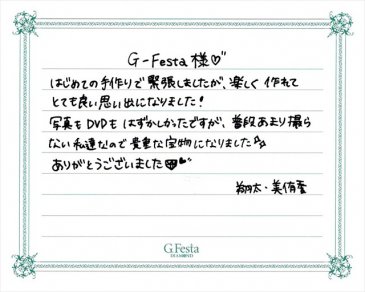 G-Festa 様♡
はじめての手作りで緊張しましたが、楽しく作れて
とても良い思い出になりました!
写真もDVDもはずかしかったですが、普段あまり撮ら
ない私達なので貴重な宝物になりました✨
ありがとうございました
翔太・美侑
G.Festa
DIAMOND